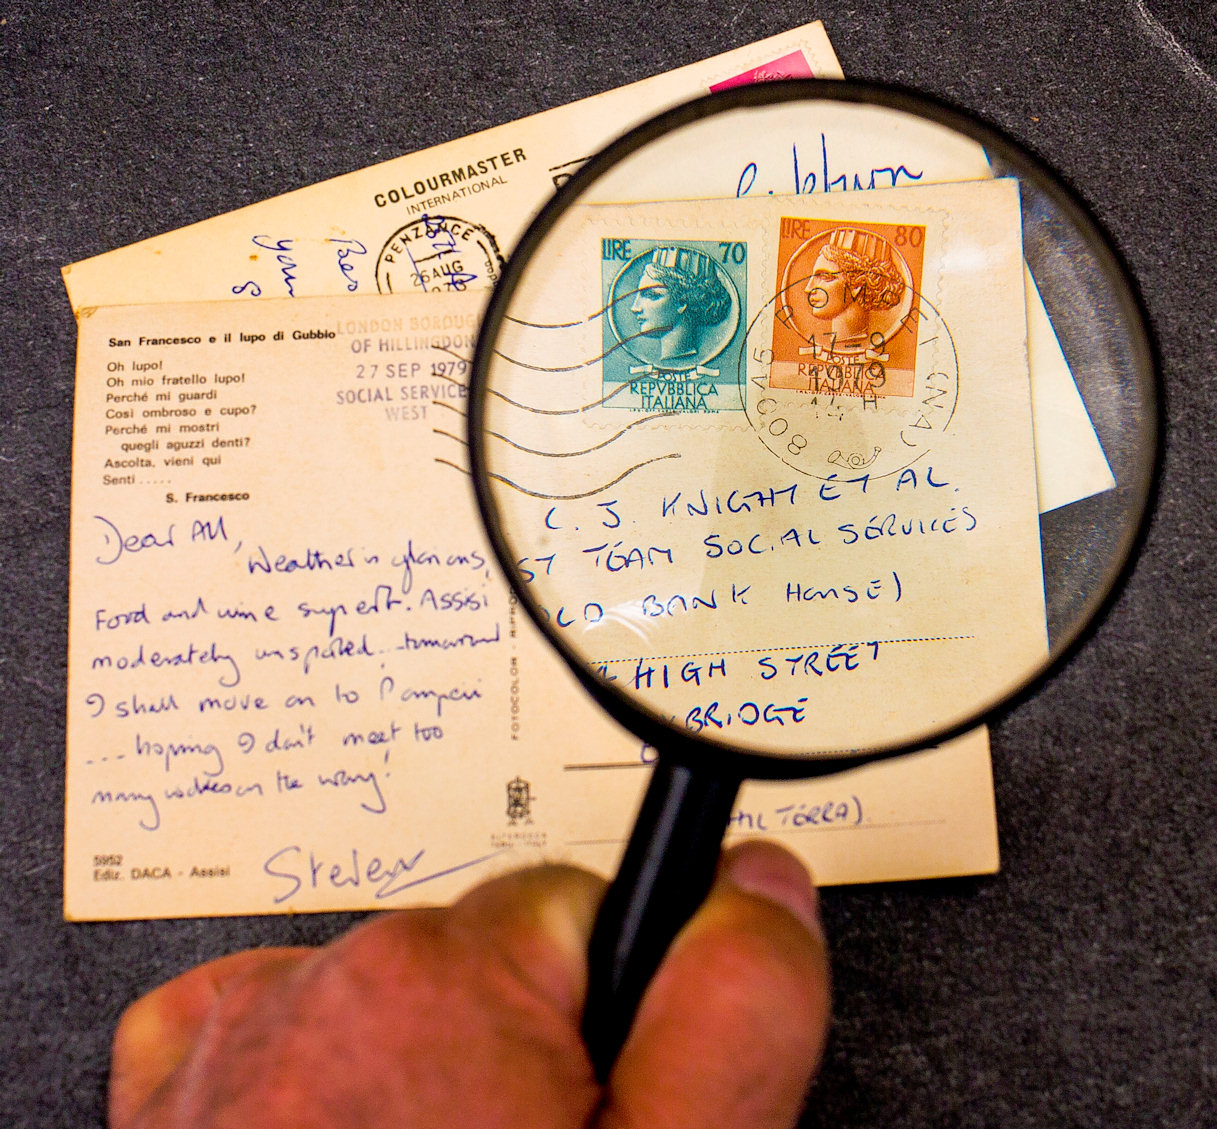 COLOURMASTER
INTERNATIONAL
PENZANCE
26 AUG
San Francesco e il lupo di Gubbio
Oh lupo!
Oh mio fratello lupo!
Perché mi guardi
Cosi ombroso e cupo?
Perché mi mostri
quegli aguzzi denti?
Ascolta, vieni qui
Senti .....
S. Francesco
LONDON BOROUG
OF HILLINGDON
27 SEP 1979
SOCIAL SERVICE
WEST
Dear All,
Weather is glorious,
Food and wine superb. Assisi
moderately unspoiled... tomorrow
I shall move on to Pompeii
... hoping I don't meet too
many wolves on the way!
Steven
5952
Ediz. DACA - Assisi
FOTOCOLOR
LIRE 70
POSTE
REPVBBLICA
ITALIANA
LIRE 80
POSTE
REPVBBLICA
ITALIANA
POMPEI (NA)
17-9
1979
80045
C. J. KNIGHT ET AL.
ST TEAM SOCIAL SERVICES
OLD BANK HOUSE)
HIGH STREET
BRIDGE
TERRA).